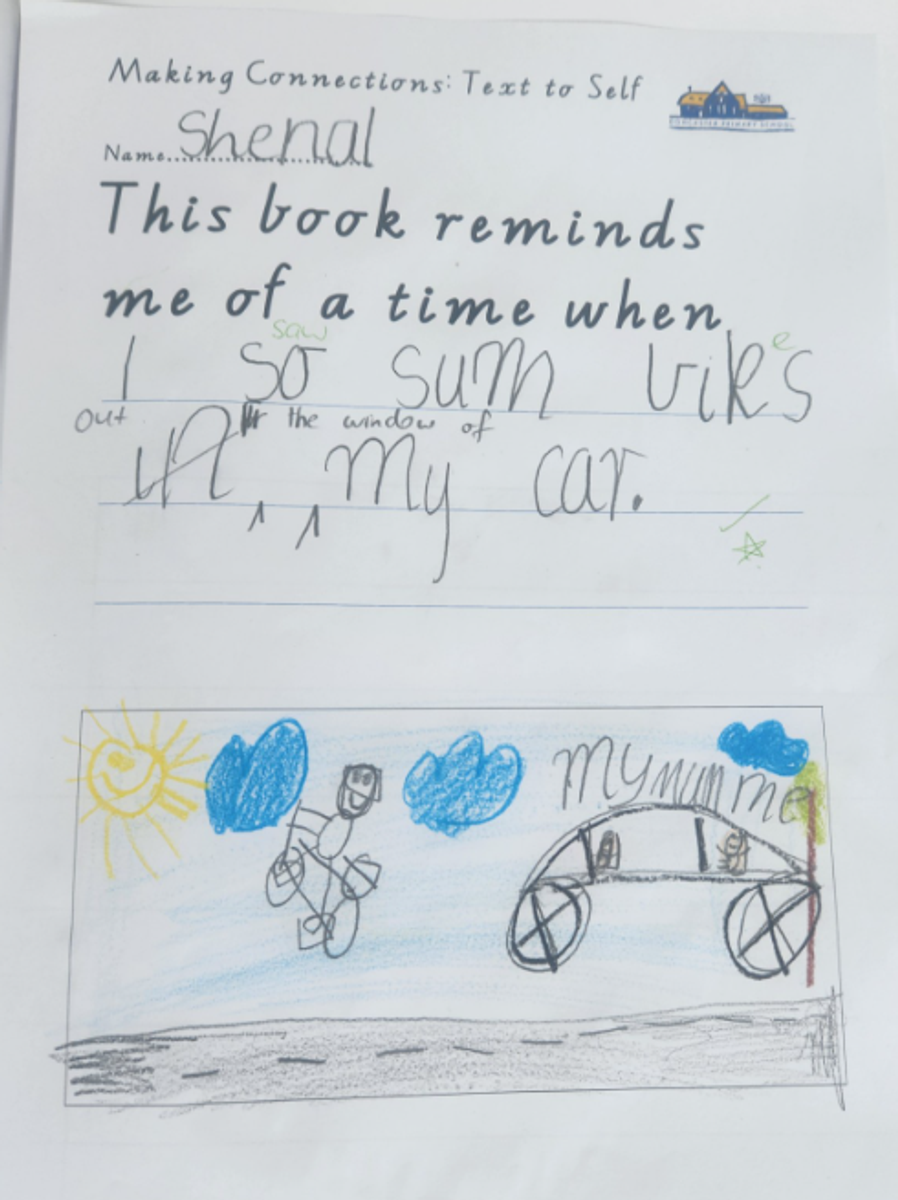 Making Connections: Text to Self
Name Shenal
This book reminds
me of a time when
saw e
I so sum biks
out the window of
in my car.
my mum me